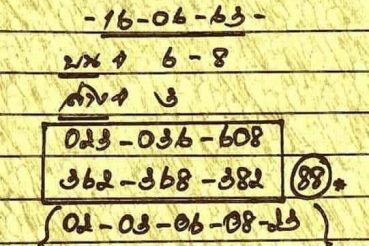 -16-06-63-
บน 4 6-8
ล่าง 4 3
023-036-608
362-368-382 88*
(02-03-06-08-23)